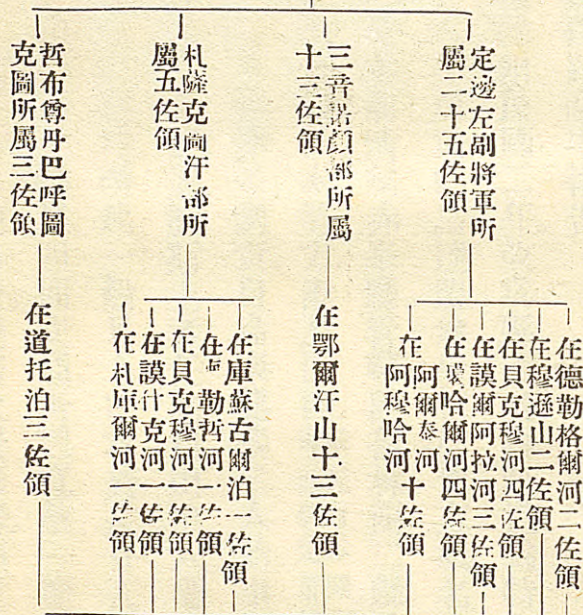 定邊左副將軍所
屬二十五佐領
在德勒格爾河二佐領
在穆遜山二佐領
在貝克穆河四佐領
在謨爾阿拉河三佐領
在噶哈爾河四佐領
在阿爾泰河
阿穆哈河十佐領
三音諾顏部所屬
十三佐領
在鄂爾汗山十三佐領
札薩克圖汗部所
屬五佐領
在庫蘇古爾泊一佐領
在 勒哲河一佐領
在貝克穆河一佐領
在謨什克河一佐領
在札庫爾河一佐領
哲布尊丹巴呼圖
克圖所屬三佐領
在道托泊三佐領